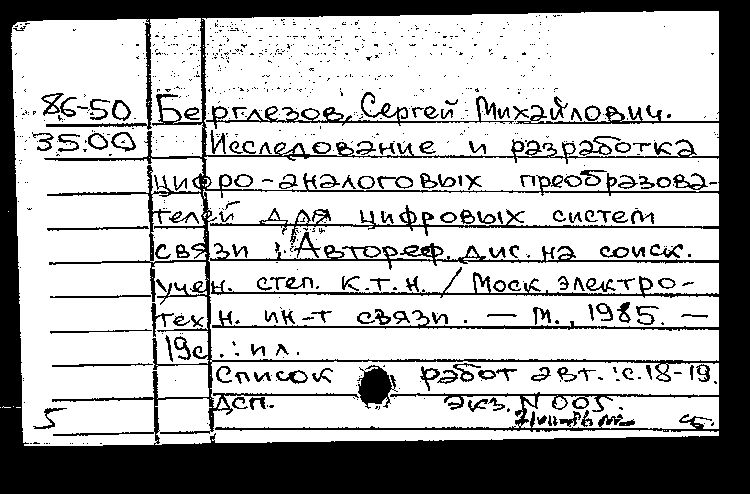 86-50 Берглезов, Сергей Михайлович.
35.00 Исследование и разработка
цифро-аналоговых преобразова-
телей для цифровых систем
связи : Автореф. дис. на соиск.
учен. степ. к.т.н. / Моск. электро-
техн. ин-т связи. — М., 1985. —
19с. : ил.
Список работ авт.: с. 18-19.
ДСП. экз. N 005.
5